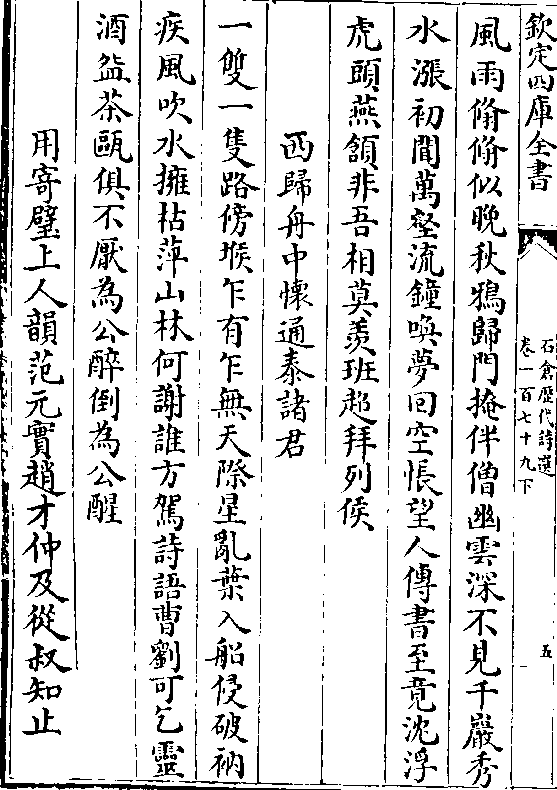 欽定四庫全書
石倉歴代詩選
卷一百七十九下
五
風雨翛翛似晚秋鴉歸門掩伴僧幽雲深不見千巖秀
水漲初聞萬壑流鐘喚夢回空悵望人傳書至竟沈浮
虎頭燕頷非吾相莫羨班超拜列侯
西歸舟中懷通泰諸君
一雙一隻路傍堠乍有乍無天際星亂葉入船侵破衲
疾風吹水擁枯萍山林何謝誰方駕詩語曹劉可乞靈
酒盌茶甌俱不厭為公醉倒為公醒
用寄璧上人韻范元實趙才仲及從叔知止